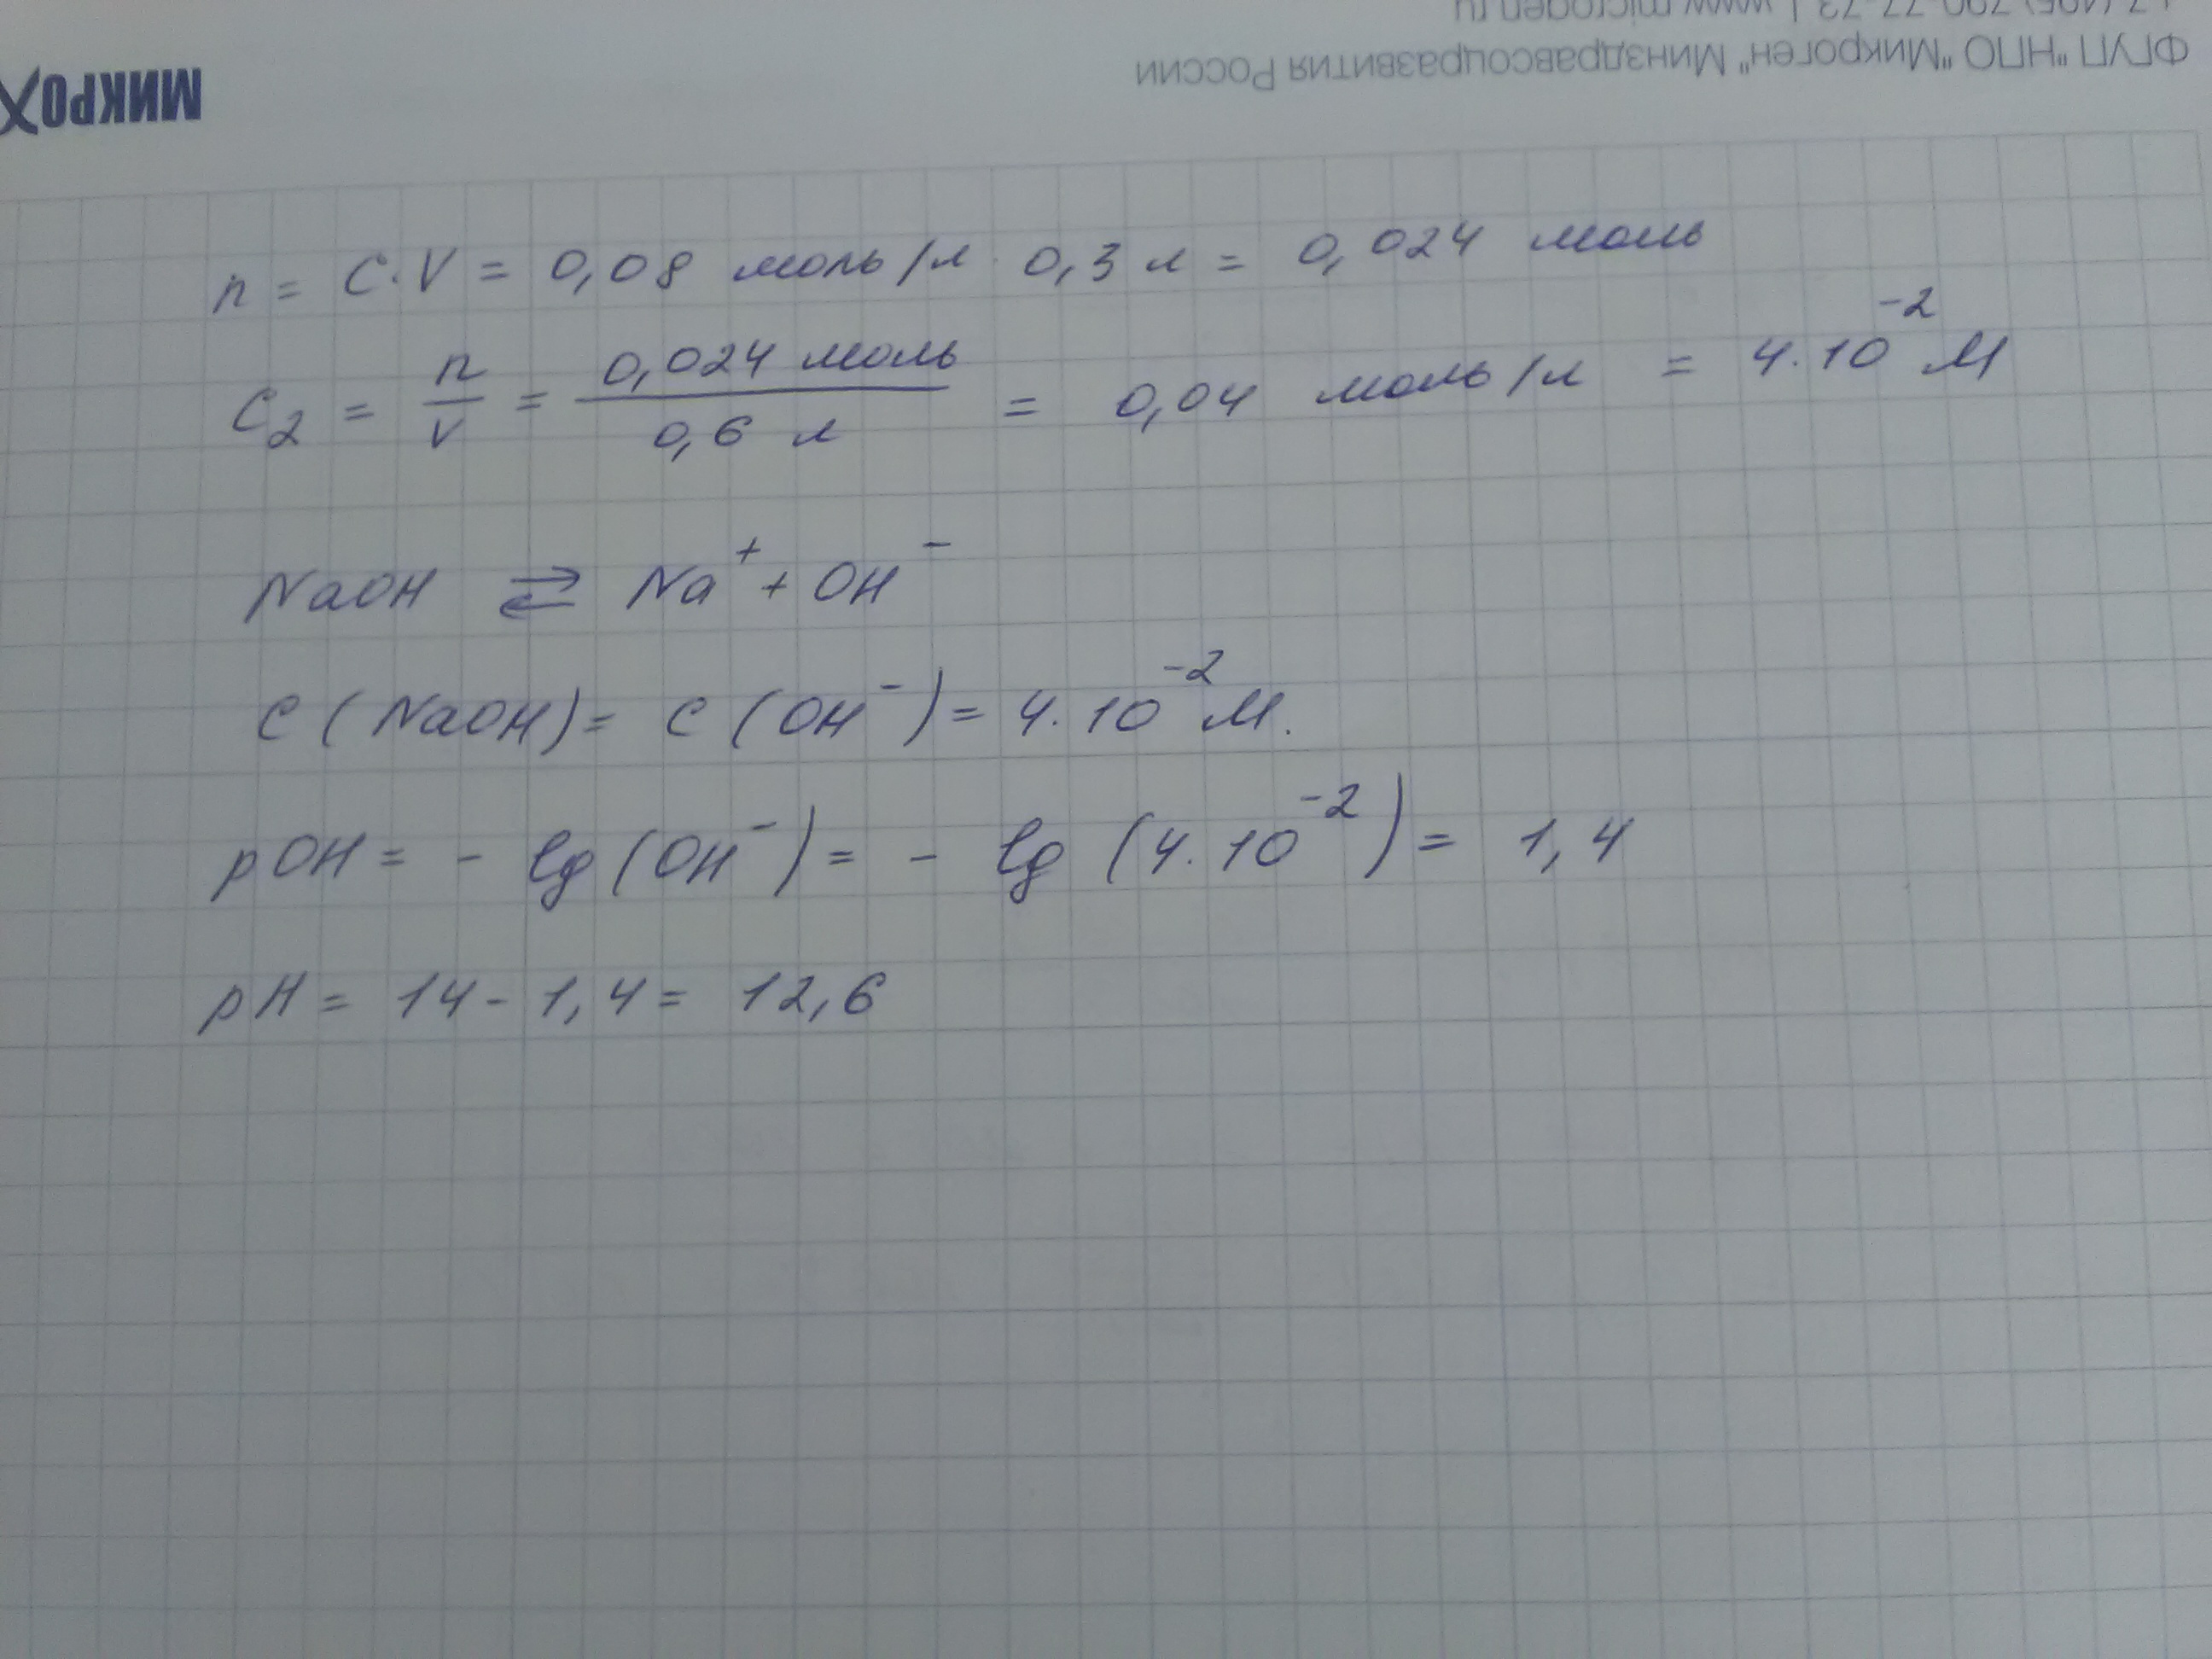 +7 (495) 790-77-73 | www.microgen.ru
ФГУП "НПО "Микроген" Минздравсоцразвития России
МИКРО
n = C·V = 0,08 моль/л · 0,3 л = 0,024 моль
C₂ = n/v = 0,024 моль / 0,6 л = 0,04 моль/л = 4·10⁻² М
NaOH ⇄ Na⁺ + OH⁻
C (NaOH) = C (OH⁻) = 4·10⁻² М.
pOH = - lg (OH⁻) = - lg (4·10⁻²) = 1,4
pH = 14 - 1,4 = 12,6